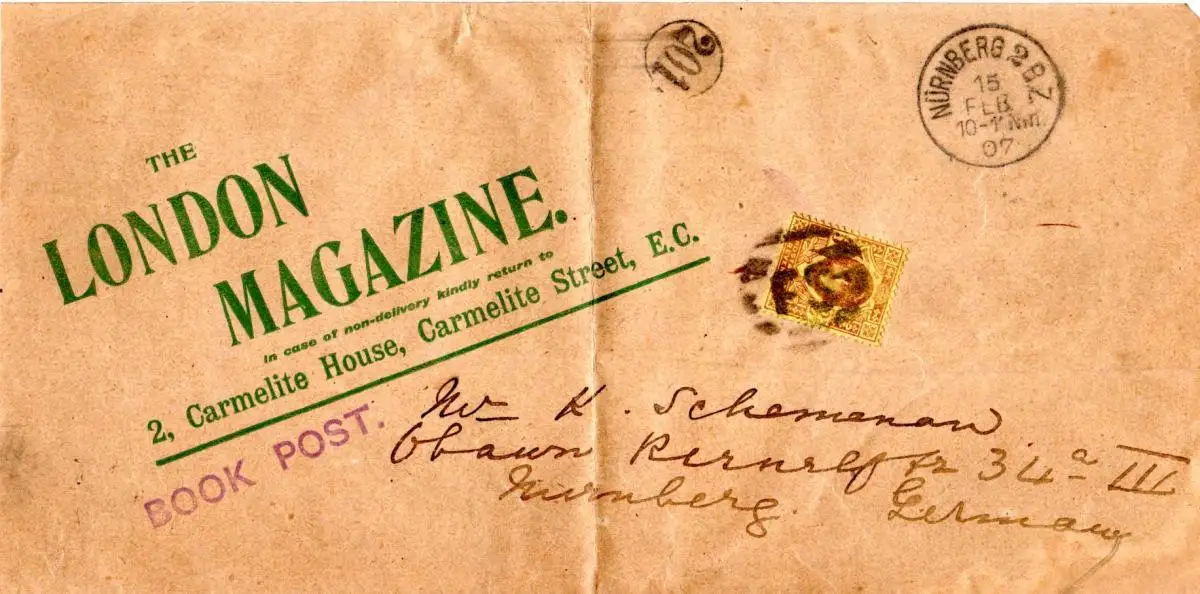 THE
LONDON
MAGAZINE.
In case of non-delivery kindly return to
2, Carmelite House, Carmelite Street, E.C.
BOOK POST.
201
NÜRNBERG 2 B.Z.
15
FEB
10-11 Nm
07
Mr K. Schemanan
34a III
Nurnberg. Germany